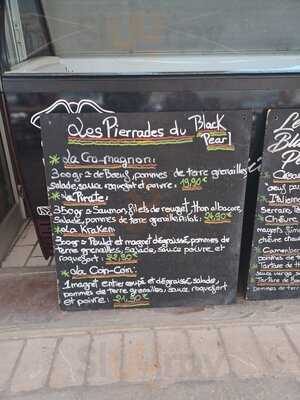 Les Pierrades du Black
Pearl
* La Cro-magnon:
300gr de Bœuf, pommes de terre grenailles
salade, sauce roquefort et poivre: 19,90€
* La Pirate:
350gr Saumon, filets de rouget, thon albacore,
Salade, pommes de terre grenaille
24,90€
* La Kraken
300gr Poulet et magret dégraissé, pommes de
terre grenailles, salade, sauce poivre et
roquefort: 22,90€
* La Coin-Coin:
1 magret entier coupé et dégraissé, salade,
pommes de terre grenailles, sauce roquefort
et poivre: 21,90€
Italienne
Serrano,
Chèvre
chèvre chaud
Tartare de
Tartare de Bœuf